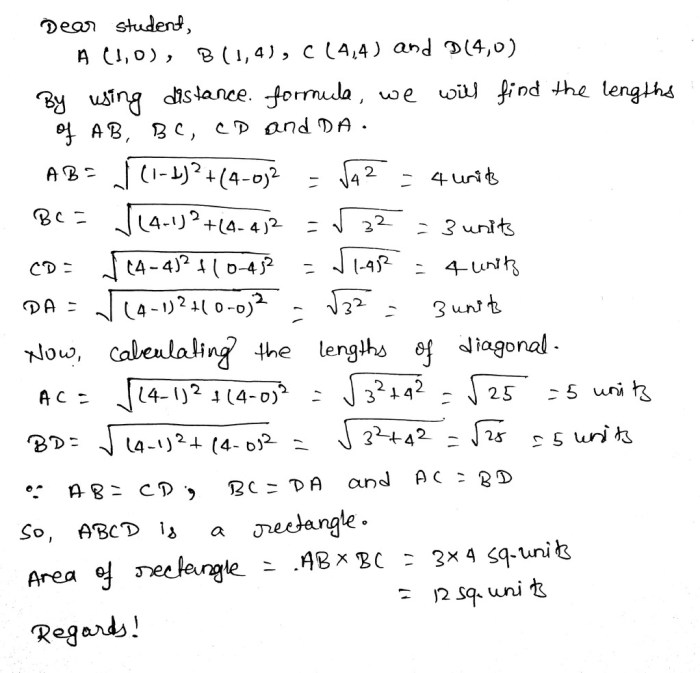 Dear student,
A (1,0), B (1,4), C (4,4) and D(4,0)
By using distance. formula, we will find the lengths
of AB, BC, CD and DA.
AB = √((1-1)²+(4-0)²) = √4² = 4 units
BC = √((4-1)²+(4-4)²) = √3² = 3 units
CD = √((4-4)²+(0-4)²) = √(-4)² = 4 units
DA = √((4-1)²+(0-0)²) = √3² = 3 units
Now, calculating the lengths of diagonal.
AC = √((4-1)²+(4-0)²) = √(3²+4²) = √25 = 5 units
BD = √((4-1)²+(4-0)²) = √(3²+4²) = √25 = 5 units
∵ AB = CD, BC = DA and AC = BD
So, ABCD is a rectangle.
Area of rectangle = .AB × BC = 3×4 sq.units
= 12 sq. units
Regards!